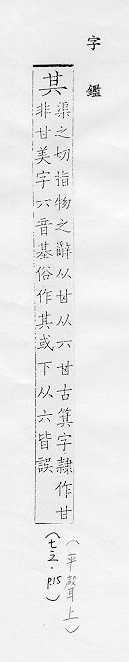 字鑑
其
渠之切指物之辭从甘从丌甘古箕字隸作甘
非甘美字丌音基俗作其或下从六皆誤
(一平聲上)
(七之·P15)